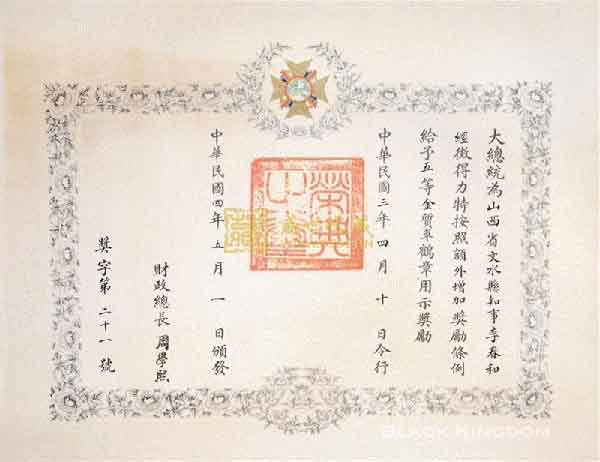 大總統為山西省文水縣知事李春和
經徵得力特按照額外增加奬勵條例
給予五等金質單鶴章用示奬勵
中華民國三年四月十日令行
榮典之璽
中華民國四年五月一日頒發
財政總長周學熙
奬字第二十一號
BLACK KINGDOM